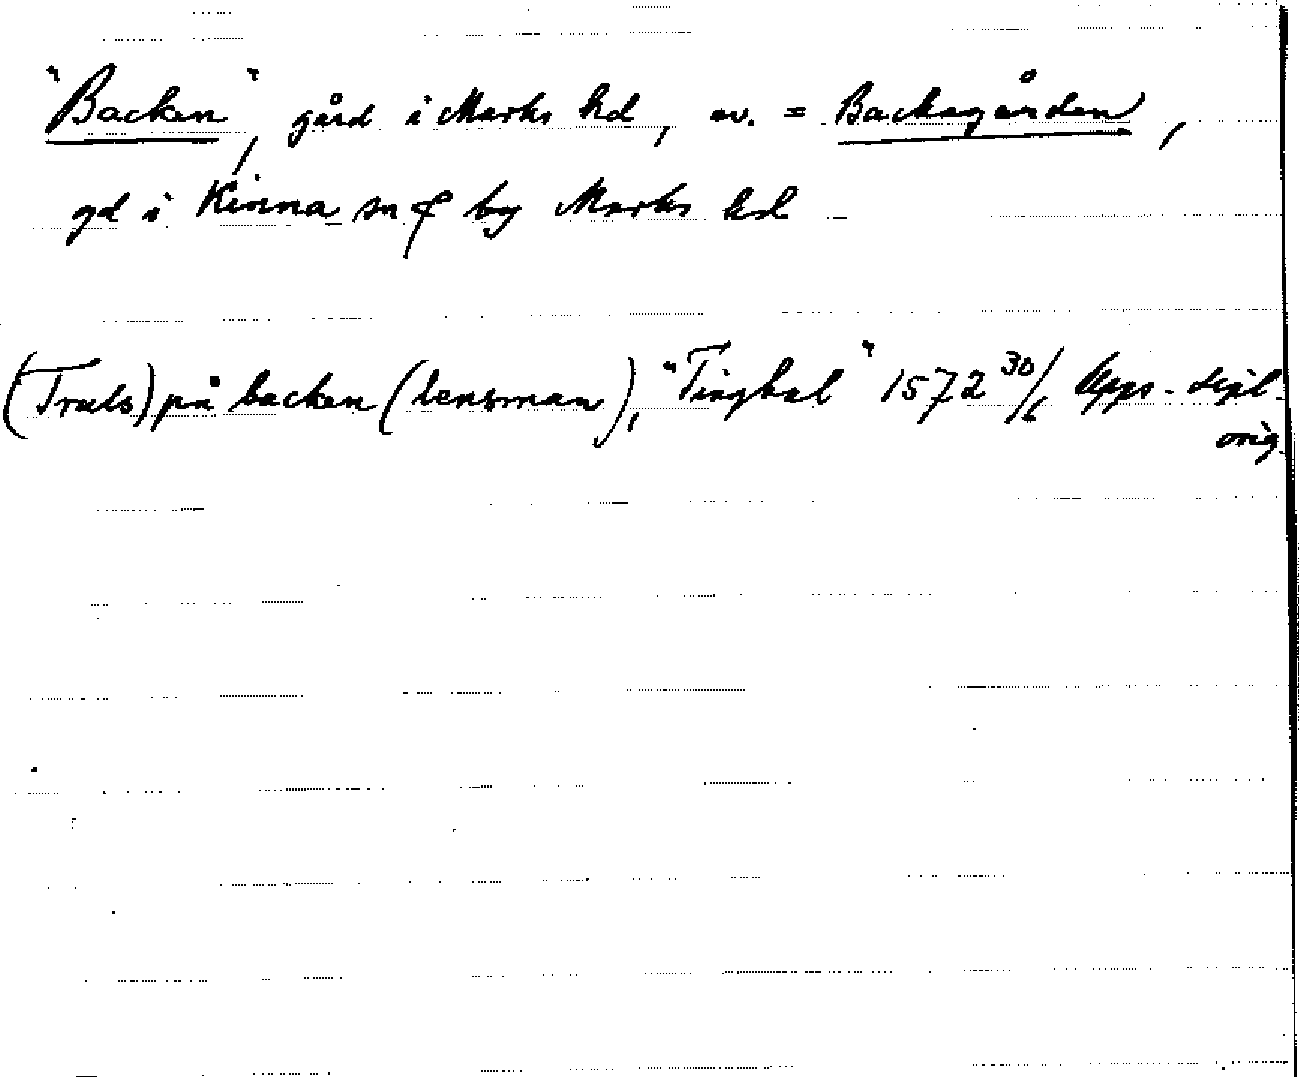 "Backen", gård i Marks hd, ev. = Backagården,
gd i Kinna sn & by Marks hd
(Truls) på backen (lensman), "Tinghul" 1572 30/6 Upps. dipl.
orig.